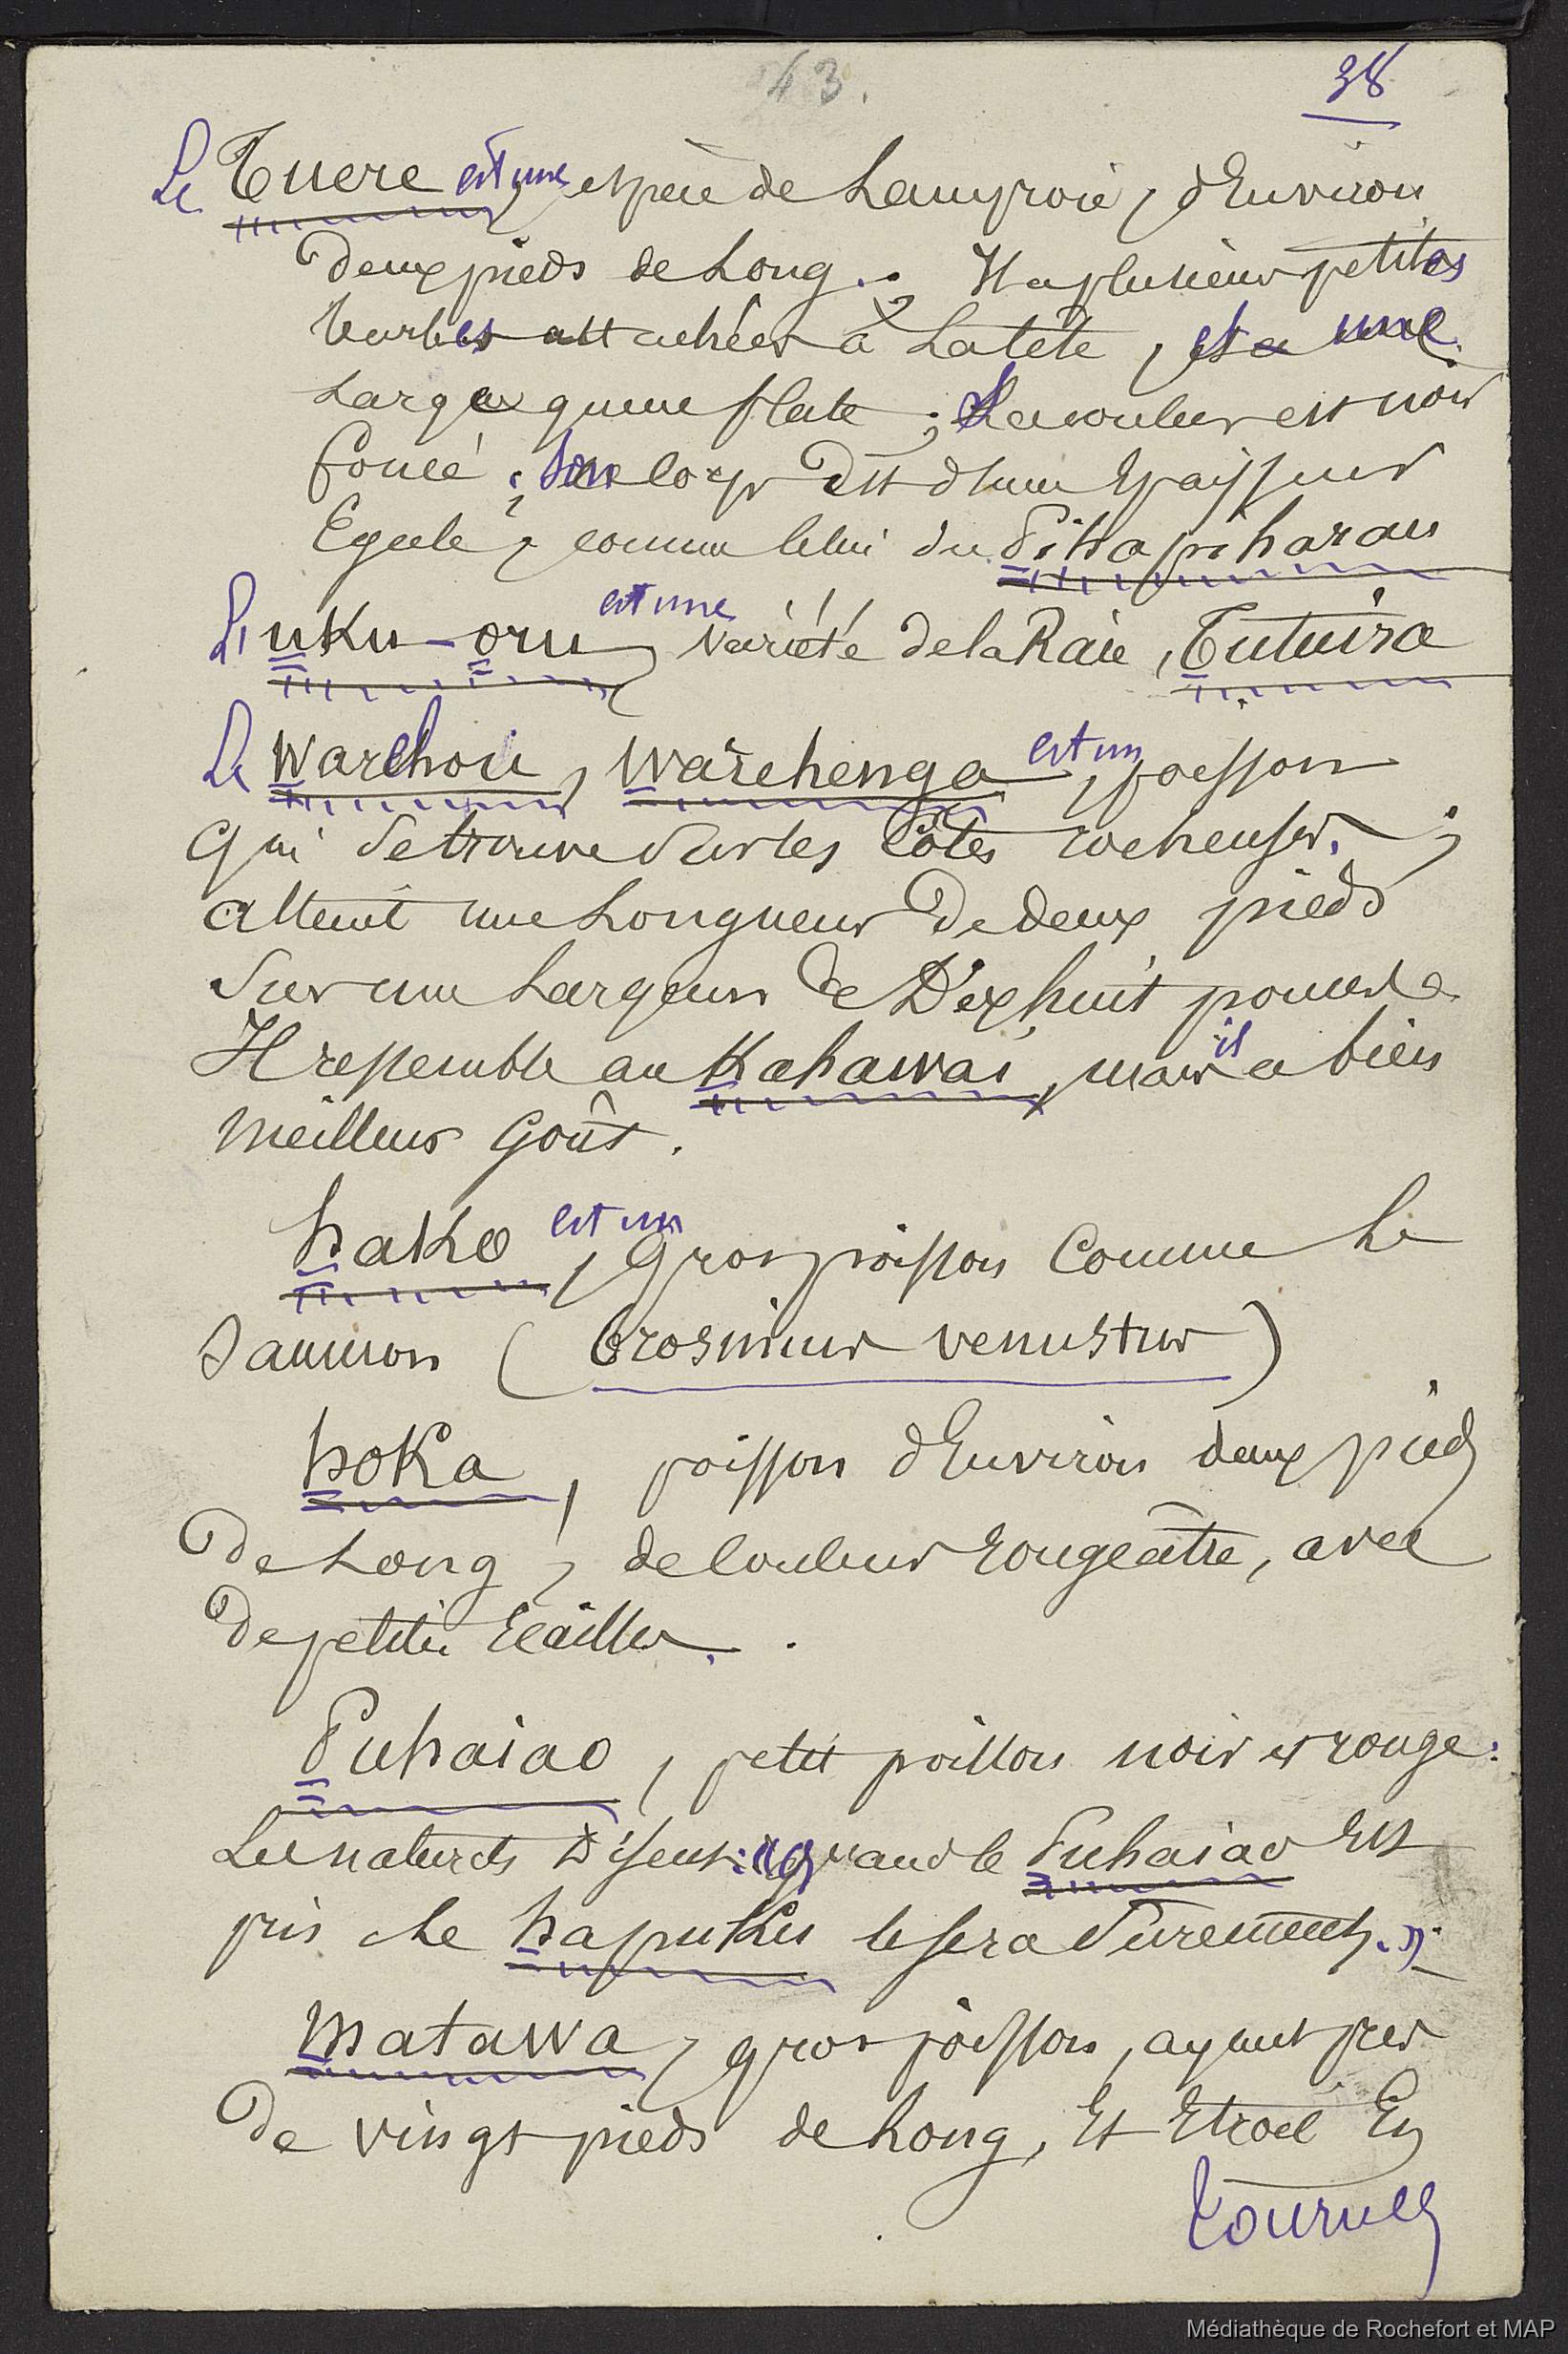 43.
38
Le Tuere est une espèce de Lamproie, d'Environ
deux pieds de Long. Il a plusieurs petites
barbes attachées à La tête, et a une
Large queue plate ; La couleur est noir
foncé ; son corps Est d'une Epaisseur
Egale, comme celui du Pihapiharau
L'uku-oru est une Variété de la Raie, Tutuira
Le Warehou, Warehenga est un, poisson
qui se trouve sur les Côtes rocheuses. ;
atteint une Longueur De deux pieds
Sur une Largeur de Dix huit pouces.
Il ressemble au Kahawai, mais il a bien
meilleur Goût.
hako est un, Gros poisson Comme Le
Saumon (Brosmius venustus)
hoka, poisson d'Environ deux pieds
De Long, de Couleur rougeâtre, avec
De petites Ecailles.
Puhaiao, petit poisson noir et rouge :
Les naturels Disent : « quand le Puhaiao Est
pris Le hapuku le sera Surement. »
matawa, gros poisson, ayant près
De vingt pieds de Long, Et Etroit En
Tournez
Médiathèque de Rochefort et MAP